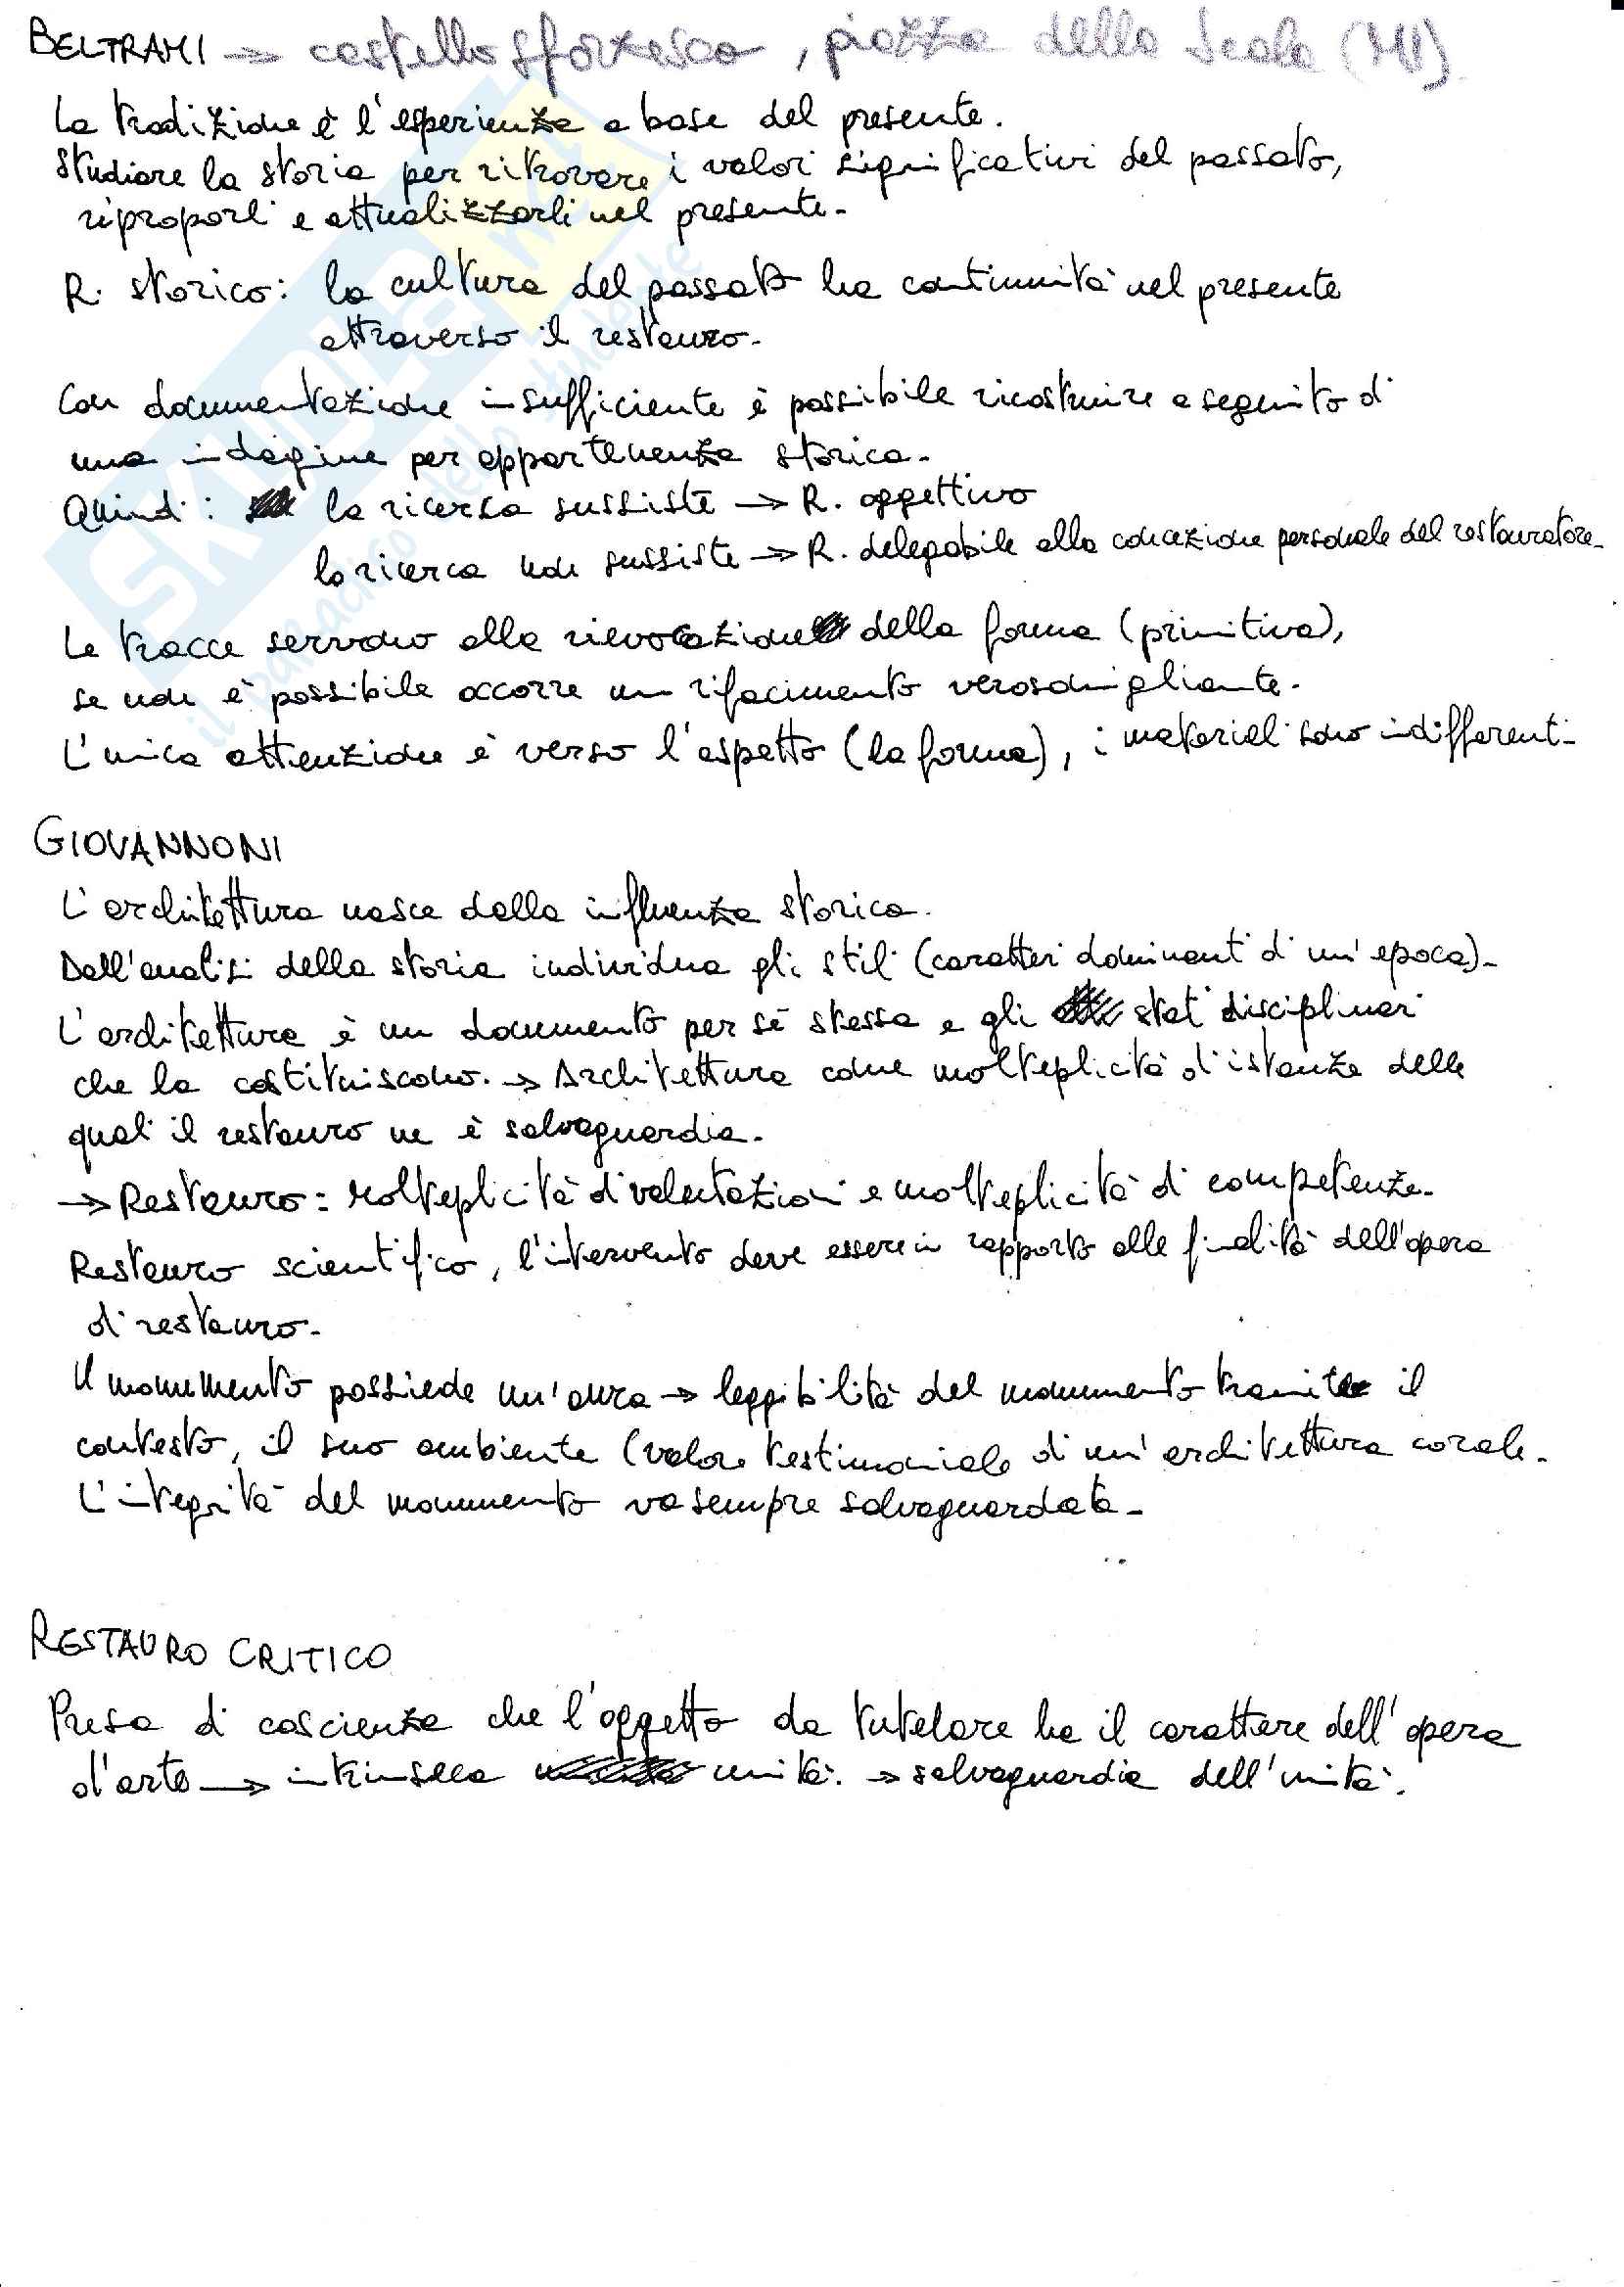 BELTRAMI → castello sforzesco, piazza della Scala (MI)
La tradizione è l'esperienza a base del presente.
Studiare la storia per ritrovare i valori significativi del passato,
riproporli e attualizzarli nel presente.
R. storico: la cultura del passato ha continuità nel presente
attraverso il restauro.
Con documentazione insufficiente è possibile ricostruire a seguito di
una indagine per appartenenza storica.
Quindi: la ricerca sussiste → R. oggettivo
la ricerca non sussiste → R. delegabile alla concezione personale del restauratore.
Le tracce servono alla rievocazione della forma (primitiva),
se non è possibile occorre un rifacimento verosomigliante.
L'unica attenzione è verso l'aspetto (la forma), i materiali sono indifferenti.
GIOVANNONI
L'architettura nasce dalla influenza storica.
Dall'analisi della storia individua gli stili (caratteri dominanti di un'epoca).
L'architettura è un documento per sé stessa e gli stati disciplinari
che la costituiscono. → Architettura come molteplicità d'istanze delle
quali il restauro ne è salvaguardia.
→ Restauro = Molteplicità di valutazioni e molteplicità di competenze.
Restauro scientifico, l'intervento deve essere in rapporto alle finalità dell'opera
di restauro.
Il monumento possiede un'aura → leggibilità del monumento tramite il
contesto, il suo ambiente (valore testimoniale di un'architettura corale.
L'integrità del monumento va sempre salvaguardata.
RESTAURO CRITICO
Presa di coscienza che l'oggetto da tutelare ha il carattere dell'opera
d'arte → intrinseca unità. → salvaguardia dell'unità.
SKUOLA.net
il paradiso dello studente